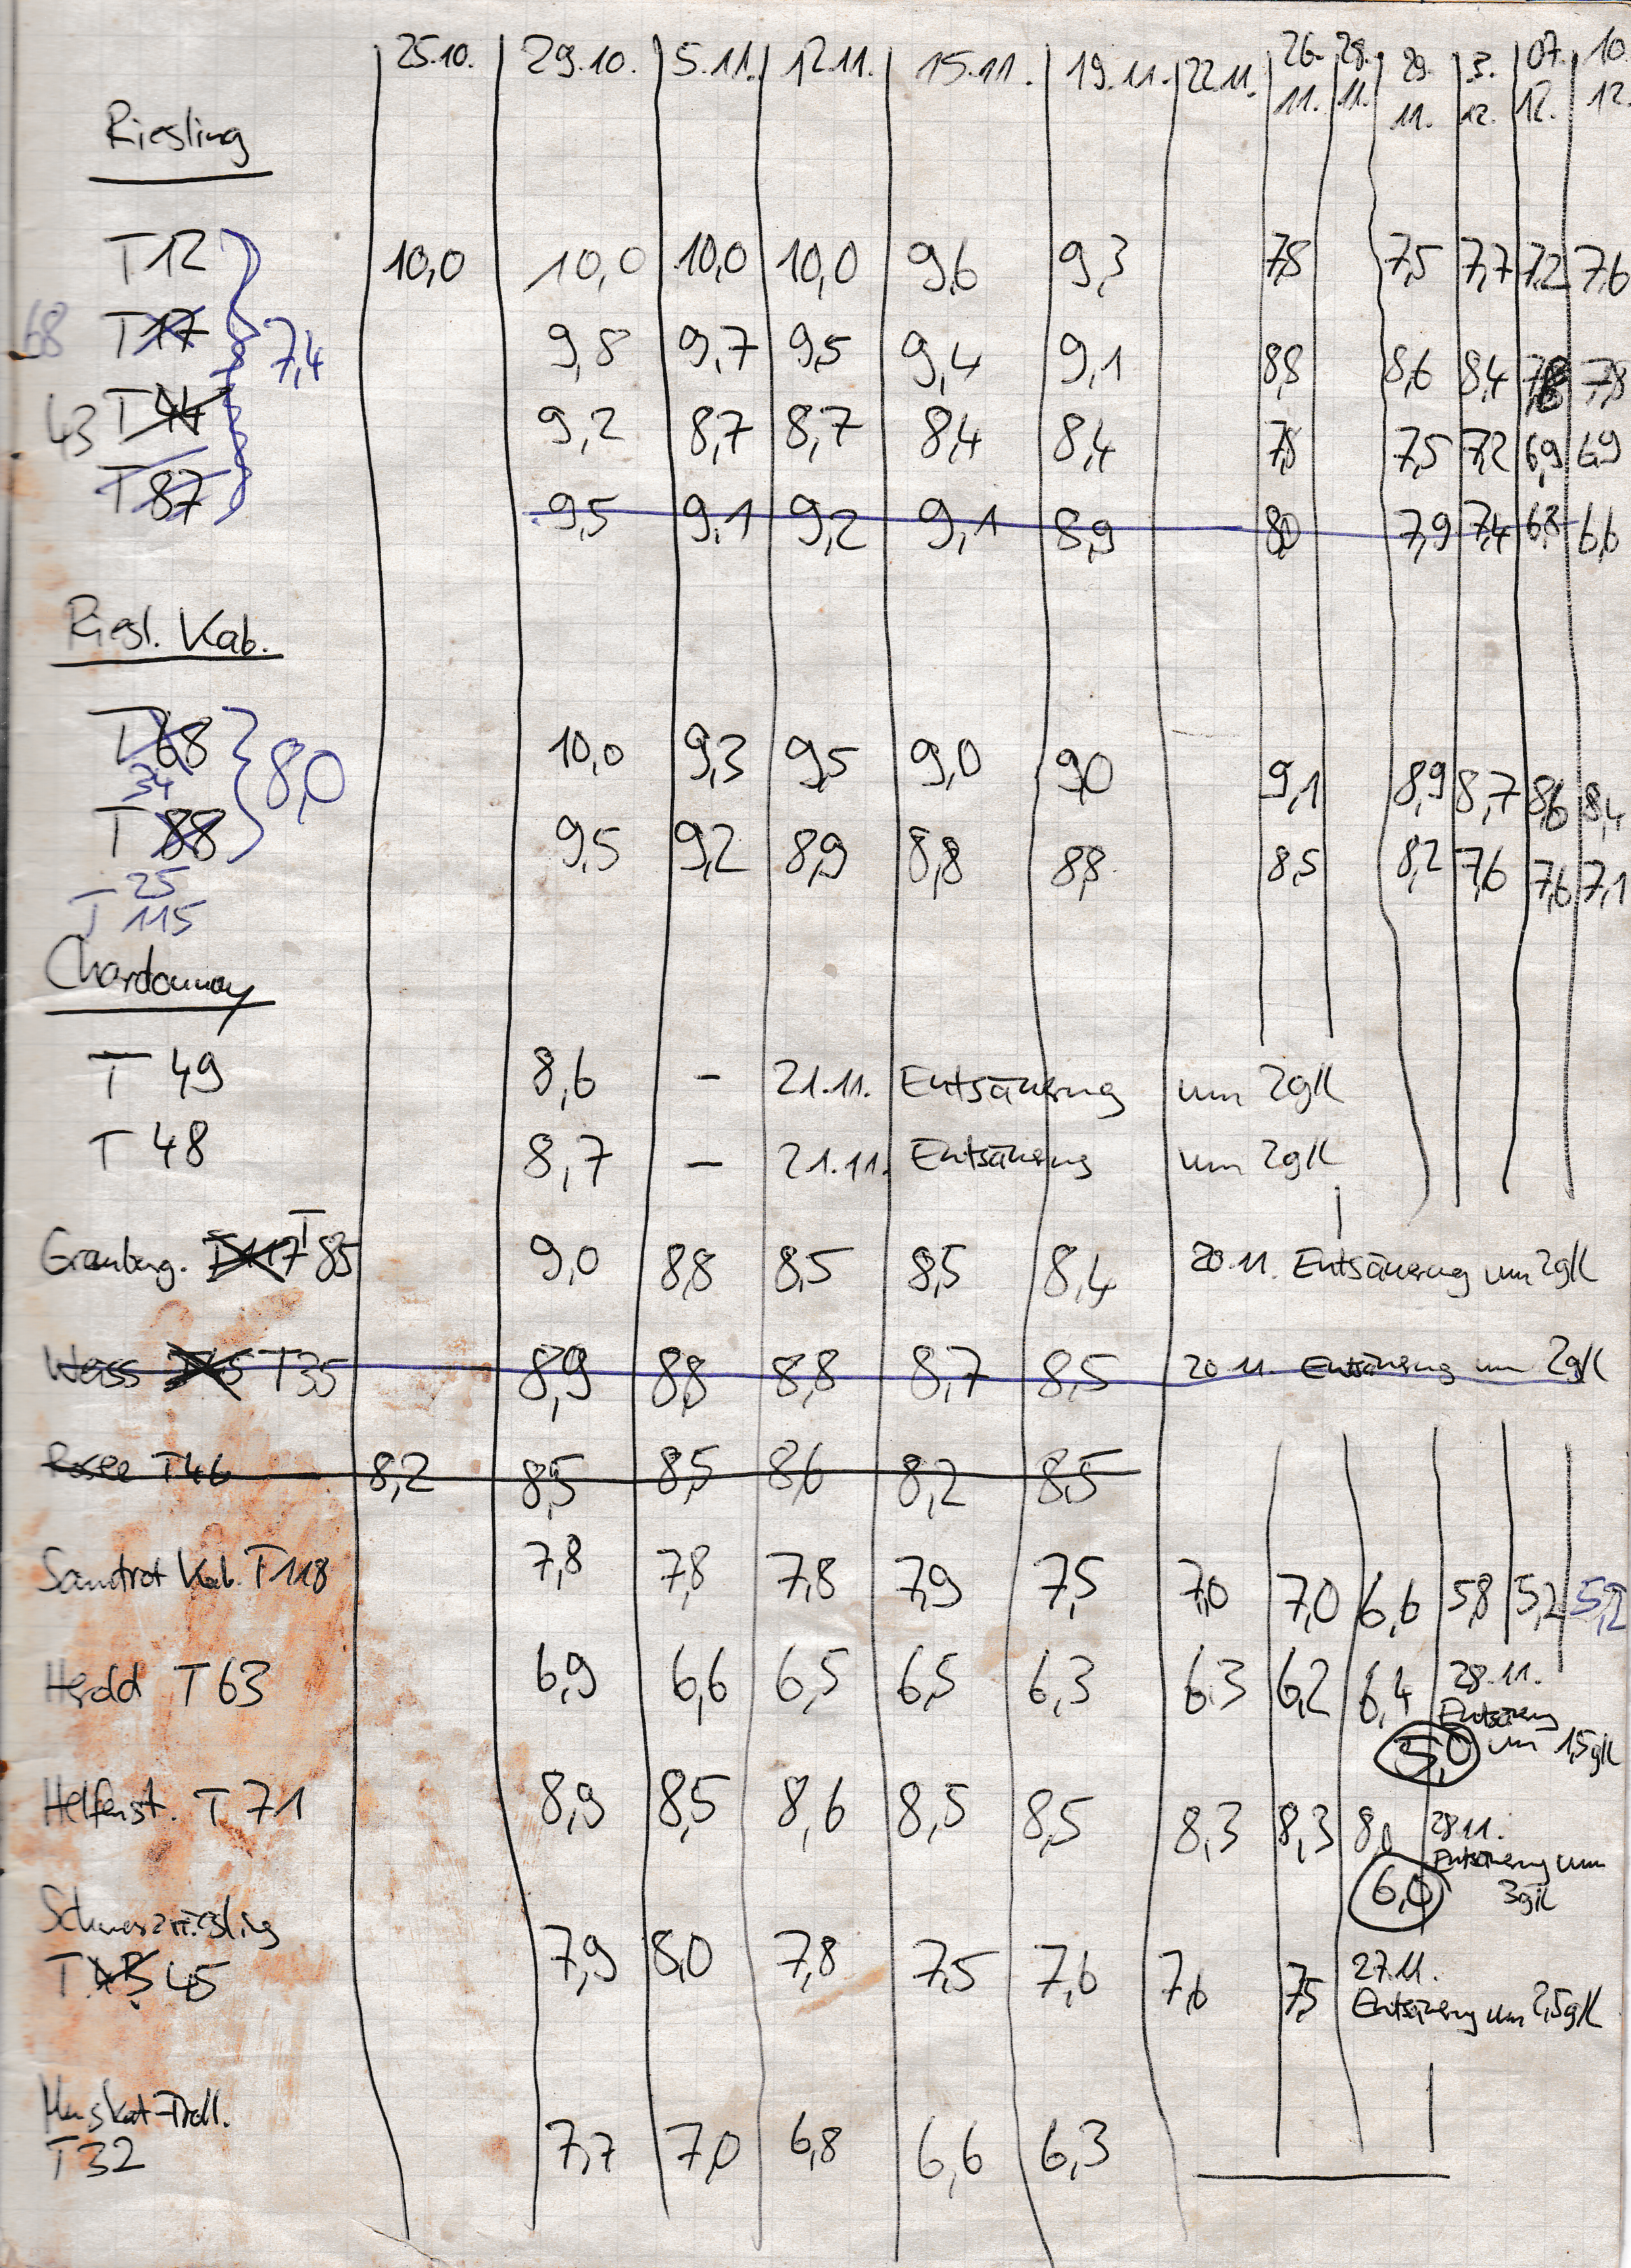 25.10. 29.10. 5.11. 12.11. 15.11. 19.11. 22.11. 26.11. 28.11. 29.11. 3.12. 07.12. 10.12.
Riesling
T12 10,0 10,0 10,0 10,0 9,6 9,3 7,8 7,5 7,7 7,2 7,6
68 T17 7,4 9,8 9,7 9,5 9,4 9,1 8,8 8,6 8,4 7,8 7,8
43 T44 9,2 8,7 8,7 8,4 8,4 7,8 7,5 7,2 6,9 6,9
T87 9,5 9,1 9,2 9,1 8,9 8,0 7,9 7,4 6,8 6,6
Riesl. Kab.
T68 10,0 9,3 9,5 9,0 9,0 9,1 8,9 8,7 8,6 8,4
34 8,0
T 88 9,5 9,2 8,9 8,8 8,8 8,5 8,2 7,6 7,6 7,1
25
T 115
Chardonnay
T 49 8,6 – 21.11. Entsäuerung um 2g/l
T 48 8,7 – 21.11. Entsäuerung um 2g/l
Grauburg. T117 T85 9,0 8,8 8,5 8,5 8,4 20.11. Entsäuerung um 2g/l
Weiss T35 8,9 8,8 8,8 8,7 8,5 20.11. Entsäuerung um 2g/l
Rosee T46 8,2 8,5 8,5 8,6 8,2 8,5
Samtrot Kab. T118 7,8 7,8 7,8 7,9 7,5 7,0 7,0 6,6 5,8 5,2 5,2
Herold T63 6,9 6,6 6,5 6,5 6,3 6,3 6,2 6,4 28.11.
Entsäuerung
5,0 um 1,5g/l
Helfenst. T71 8,9 8,5 8,6 8,5 8,5 8,3 8,3 8,0 28.11.
Entsäuerung um
6,0 3g/l
Schwarzriesling
T 45 7,9 8,0 7,8 7,5 7,6 7,6 7,5 27.11.
Entsäuerung um 2,5g/l
Muskat-Troll.
T32 7,7 7,0 6,8 6,6 6,3